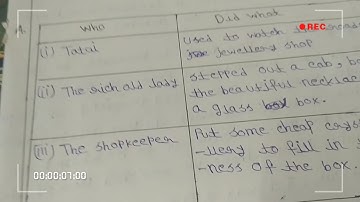 REC
1. Who Did what
(i) Tatai used to watch
jewellery shop
(ii) The rich old lady stepped out a cab,
the beautiful
a glass box.
(iii) The shopkeeper Put some cheap
-llery to fill in
-ness of the box.
00:00:07:00